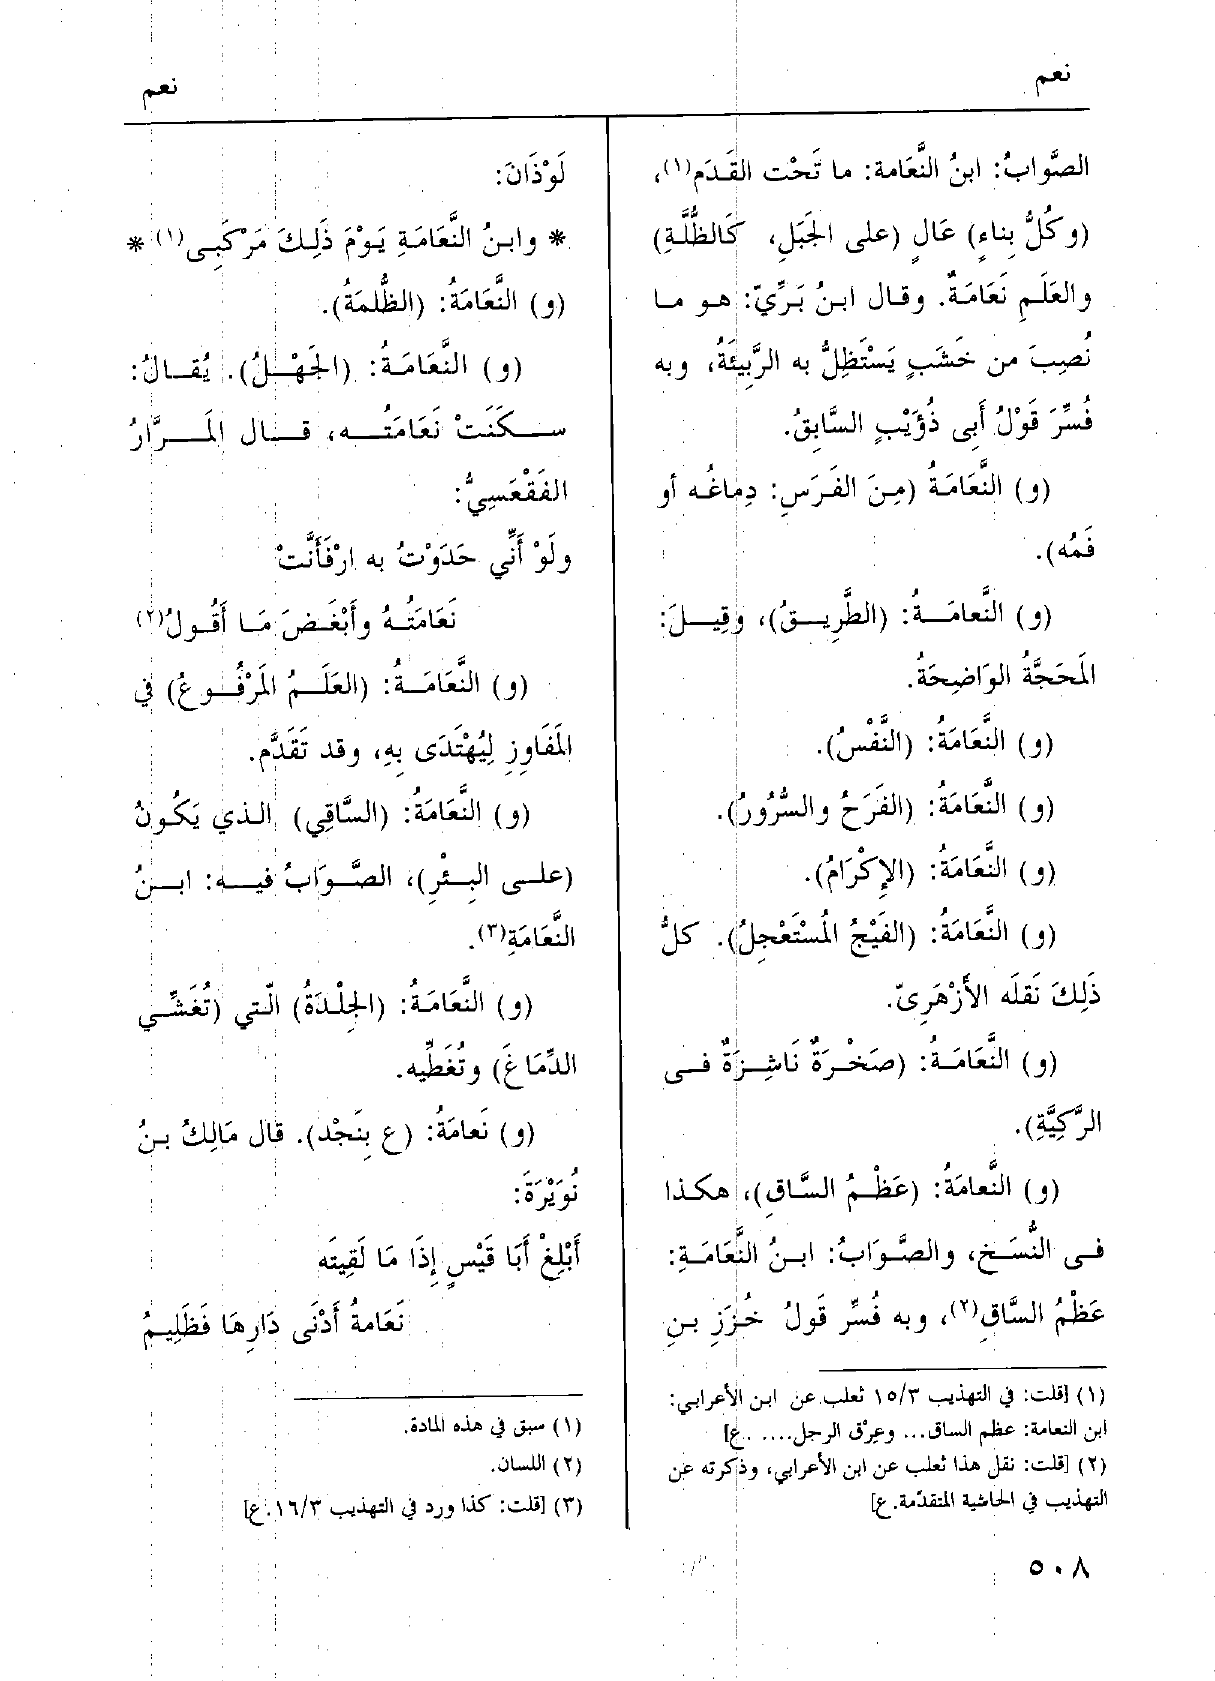 نعم
نعم
الصَّوابُ: ابنُ النَّعَامة: ما تَحْت القَدَم(١)،
(وكُلُّ بِناءٍ) عَالٍ (على الجَبَلِ، كَالظُّلَّةِ)
والعَلَمِ نَعَامَةٌ. وقال ابنُ بَرِّيّ: هو ما
نُصِبَ من خَشَبٍ يَسْتَظِلُّ به الرَّبِيئَةُ، وبه
فُسِّرَ قَوْلُ أَبِى ذُؤَيْبٍ السَّابِقُ.
(و) النَّعَامَةُ (مِنَ الفَرَسِ: دِماغُه أو
فَمُه).
(و) النَّعامَةُ: (الطَّرِيقُ)، وقِيلَ:
المَحَجَّةُ الوَاضِحَةُ.
(و) النَّعَامَةُ: (النَّفْسُ).
(و) النَّعَامَةُ: (الفَرَحُ والسُّرُورُ).
(و) النَّعَامَةُ: (الإِكْرَامُ).
(و) النَّعَامَةُ: (الفَيْجُ المُسْتَعْجِلُ). كلُّ
ذَلِكَ نَقلَه الأَزْهَرِىّ.
(و) النَّعَامَةُ: (صَخْرَةٌ نَاشِزَةٌ فى
الرَّكِيَّةِ).
(و) النَّعامَةُ: (عَظْمُ السَّاقِ)، هكذا
فى النُّسَخِ، والصَّوَابُ: ابنُ النَّعَامَةِ:
عَظْمُ السَّاقِ(٢)، وبه فُسِّر قَولُ خُزَزِ بنِ
(١) [قلت: في التهذيب ١٥/٣ ثعلب عن ابن الأعرابي:
ابن النعامة: عظم الساق... وعِرْق الرجل.... .ع]
(٢) [قلت: نقل هذا ثعلب عن ابن الأعرابي، وذكرته عن
التهذيب في الحاشية المتقدّمة. ع]
لَوْذَانَ:
* وابنُ النَّعَامَةِ يَوْمَ ذَلِكَ مَرْكَبِى(١) *
(و) النَّعَامَةُ: (الظُّلمَةُ).
(و) النَّعَامَةُ: (الجَهْلُ). يُقالُ:
سكَنَتْ نَعَامَتُه، قال المَرَّارُ
الفَقْعَسِيُّ:
ولَوْ أَنِّي حَدَوْتُ به ارْفَأَنَّتْ
نَعَامَتُهُ وأَبْغَضَ مَا أَقُولُ(٢)
(و) النَّعَامَةُ: (العَلَمُ المَرْفُوعُ) في
المَفَاوِزِ لِيُهْتَدَى بِهِ، وقد تَقَدَّم.
(و) النَّعَامَةُ: (السَّاقِي) الذي يَكُونُ
(على البِئْرِ)، الصَّوَابُ فيه: ابنُ
النَّعَامَةِ(٣).
(و) النَّعَامَةُ: (الجِلْدَةُ) الّتي (تُغَشِّي
الدِّمَاغَ) وتُغَطِّيه.
(و) نَعامَةُ: (ع بِنَجْد). قال مَالِكُ بنُ
نُوَيْرَةَ:
أَبْلِغْ أَبَا قَيْسٍ إِذَا مَا لَقِيتَه
نَعَامةُ أَدْنَى دَارِهَا فَظَلِيمُ
(١) سبق في هذه المادة.
(٢) اللسان.
(٣) [قلت: كذا ورد في التهذيب ١٦/٣.ع]
٥٠٨